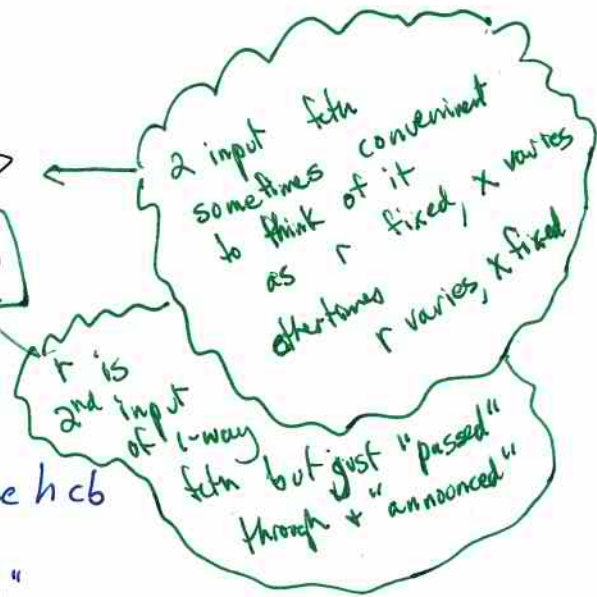 2 input fctn
sometimes convenient
to think of it
as r fixed, x varies
othertimes
r varies, x fixed
r is
2nd input
of 1-way
fctn but just "passed"
through + "announced"
e hcb
"